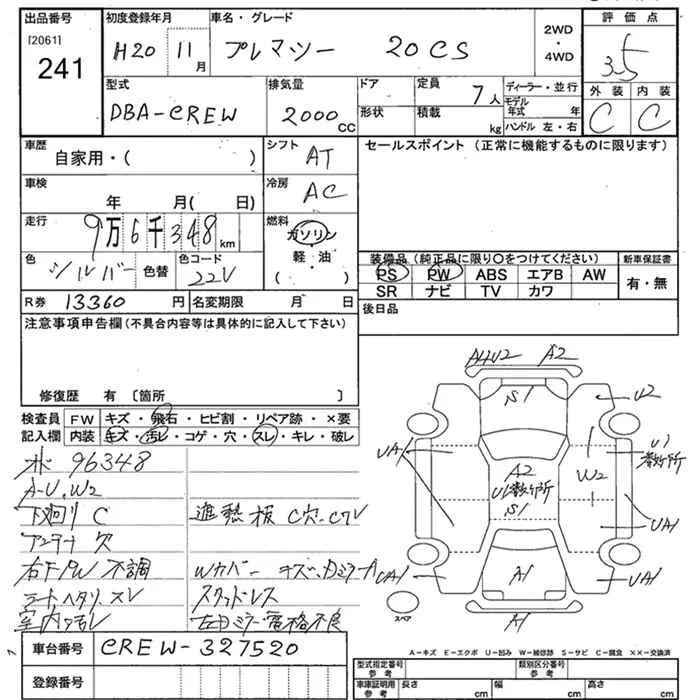 出品番号
[2061]
241
初度登録年月
H20 11月
車名・グレード
プレマシー 20CS
2WD
・
4WD
評価点
3.5
外装 内装
C C
型式
DBA-CREW
排気量
2000 CC
ドア
形状
定員 7人
積載 kg
ディーラー・並行
モデル年式 年
ハンドル 左・右
車歴
自家用・( )
シフト AT
セールスポイント (正常に機能するものに限ります)
車検
年 月( 日)
冷房 AC
走行
9万6千348 km
燃料
ガソリン
・
軽・油
( )
色 シルバー 色替
色コード 22V
装備品(純正品に限り○をつけてください) 新車保証書
PS PW ABS エアB AW
SR ナビ TV カワ
有・無
R券 13360 円 名変期限 月 日
後日品
注意事項申告欄(不具合内容等は具体的に記入して下さい)
修復歴 有 〔箇所 〕
検査員記入欄
FW キズ・飛石・ヒビ割・リペア跡・×要
内装 キズ・汚レ・コゲ・穴・スレ・キレ・破レ
96348
A-U.W2
下廻り C
アンテナ欠
右F/PW 不調
シートヘタリ、スレ
室内汚レ
遮熱板 C穴、C
Wカバー キズ、
スタッドレス
左ミラー電格不良
A4U2 A2
S1
U2
UA1
A2
U1数ヶ所
S1
W2
U1
数ヶ所
UA1
UA1
A1
UA1
A1
スペア
A-キズ E-エクボ U-凹み W-補修跡 S-サビ C-腐食 ××-交換済
車台番号 CREW-327520
登録番号
型式指定番号
参考
類別区分番号
参考
車庫証明用
参考
長さ cm
幅 cm
高さ cm